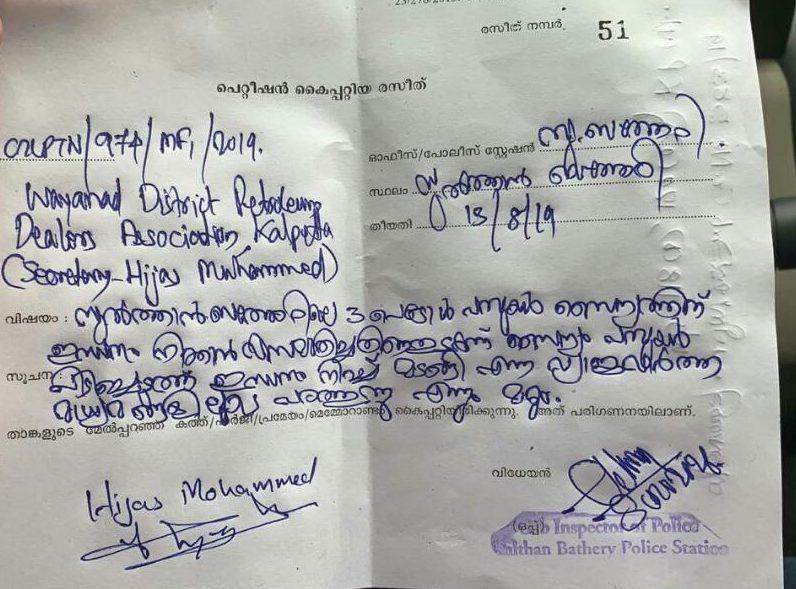 രസീത് നമ്പർ. 51
പെറ്റീഷൻ കൈപ്പറ്റിയ രസീത്
/974/ /2019.
ഓഫീസ്/പോലീസ് സ്റ്റേഷൻ സു.ബത്തേരി
Wayanad District Petroleum
സ്ഥലം സുൽത്താൻ ബത്തേരി
Dealers Association, Kalpetta
തീയതി 15/8/19
(Secretary Hijas Muhammed)
വിഷയം : സുൽത്താൻ ബത്തേരിയിലെ 3 പെട്രോൾ പമ്പുകൾ സൈന്യത്തിന്
ഇന്ധനം സൈന്യം പമ്പുകൾ
സൂചന : പിടിച്ചെടുത്ത് ഇന്ധനം നിറച്ച് മടങ്ങി എന്ന വ്യാജവാർത്ത
എന്നും മറ്റും.
താങ്കളുടെ മേൽപ്പറഞ്ഞ കത്ത്/ഹർജി/പ്രമേയം/മെമ്മോറാണ്ടം കൈപ്പറ്റിയിരിക്കുന്നു. അത് പരിഗണനയിലാണ്.
വിധേയൻ
Hijas Mohammed
(ഒപ്പ്)
Sub Inspector of Police
Sulthan Bathery Police Station